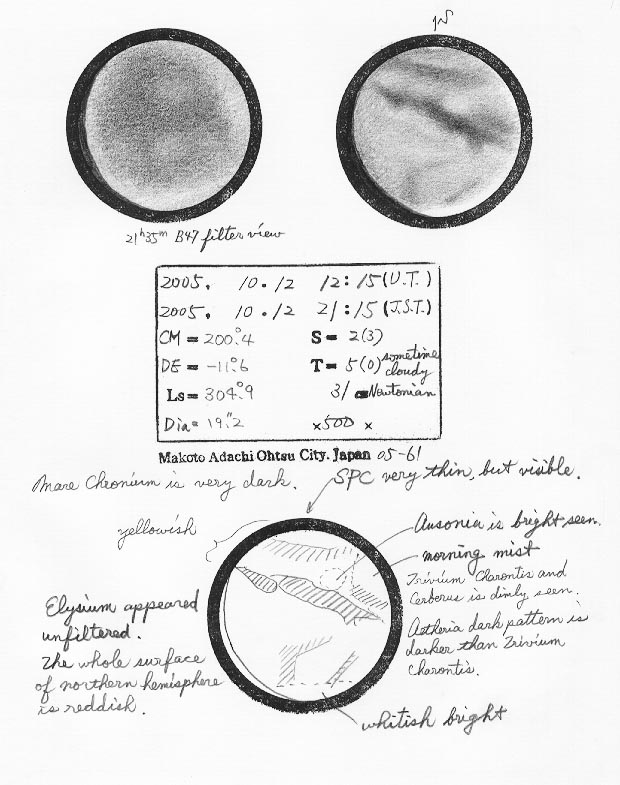 21h35m B47 filter view
2005. 10.12 12:15 (U.T.)
2005. 10.12 21:15 (J.S.T.)
CM = 200.°4 S = 2(3)
DE = -11.°6 T = 5(0) sometime cloudy
Ls = 304.°9 31 Newtonian
Dia = 19."2 ×500 ×
Makoto Adachi Ohtsu City. Japan 05-61
Mare Chronium is very dark.
SPC very thin, but visible.
yellowish
Ausonia is bright seen.
morning mist
Trivium Charontis and
Cerberus is dimly seen.
Aetheria dark pattern is
darker than Trivium
Charontis.
Elysium appeared
unfiltered.
The whole surface
of northern hemisphere
is reddish.
whitish bright